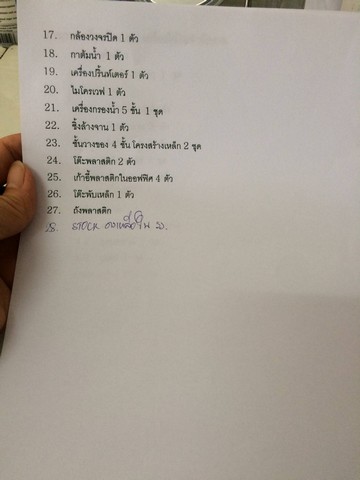 17. กล้องวงจรปิด 1 ตัว
18. กาต้มน้ำ 1 ตัว
19. เครื่องปริ้นท์เตอร์ 1 ตัว
20. ไมโครเวฟ 1 ตัว
21. เครื่องกรองน้ำ 5 ชั้น 1 ชุด
22. ซิ้งล้างจาน 1 ตัว
23. ชั้นวางของ 4 ชั้น โครงสร้างเหล็ก 2 ชุด
24. โต๊ะพลาสติก 2 ตัว
25. เก้าอี้พลาสติกในออฟฟิศ 4 ตัว
26. โต๊ะพับเหล็ก 1 ตัว
27. ถังพลาสติก
28. STOCK